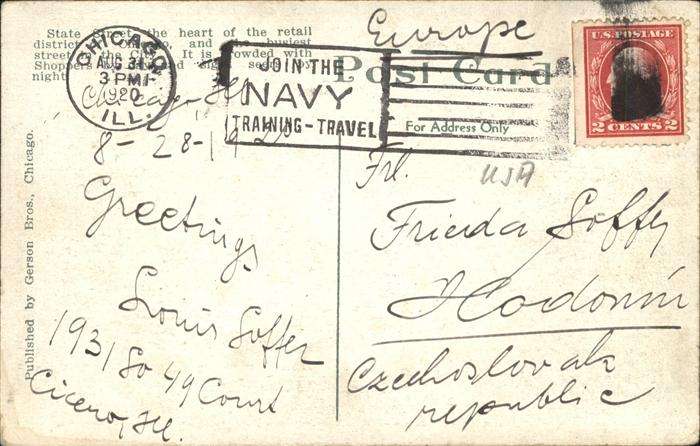 State Street, the heart of the retail
district of Chicago, and the busiest
street in the City. It is crowded with
Shoppers day and night
CHICAGO
AUG 31
3 PM
1920
ILL.
JOIN THE
NAVY
TRAINING-TRAVEL
Post Card
For Address Only
Europe
U.S. POSTAGE
2 CENTS 2
Published by Gerson Bros., Chicago.
Chicago, Ill
8-28-1920
Greetings
Louis Soffer
1931 So 49 Court
Cicero, Ill.
USA
Frl.
Frieda Soffer
Hodonín
Czechoslovak
republic